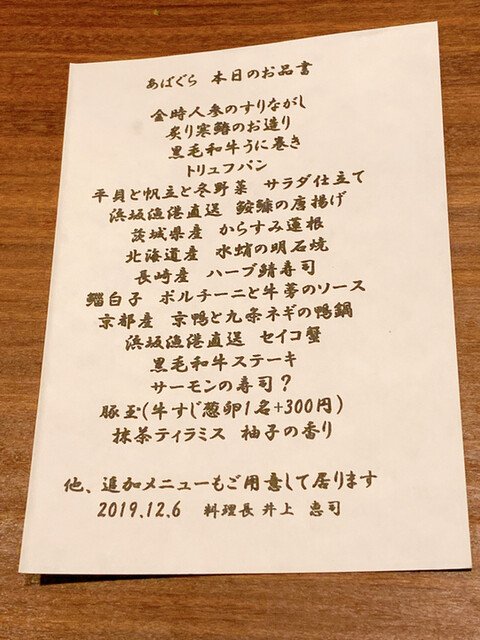 あばぐら 本日のお品書
金時人参のすりながし
炙り寒鰆のお造り
黒毛和牛うに巻き
トリュフパン
平貝と帆立と冬野菜 サラダ仕立て
浜坂漁港直送 鮟鱇の唐揚げ
茨城県産 からすみ蓮根
北海道産 水蛸の明石焼
長崎産 ハーブ鯖寿司
鱈白子 ポルチーニと牛蒡のソース
京都産 京鴨と九条ネギの鴨鍋
浜坂漁港直送 セイコ蟹
黒毛和牛ステーキ
サーモンの寿司?
豚玉(牛すじ葱卵1名+300円)
抹茶ティラミス 柚子の香り
他、追加メニューもご用意して居ります
2019.12.6 料理長 井上 恵司